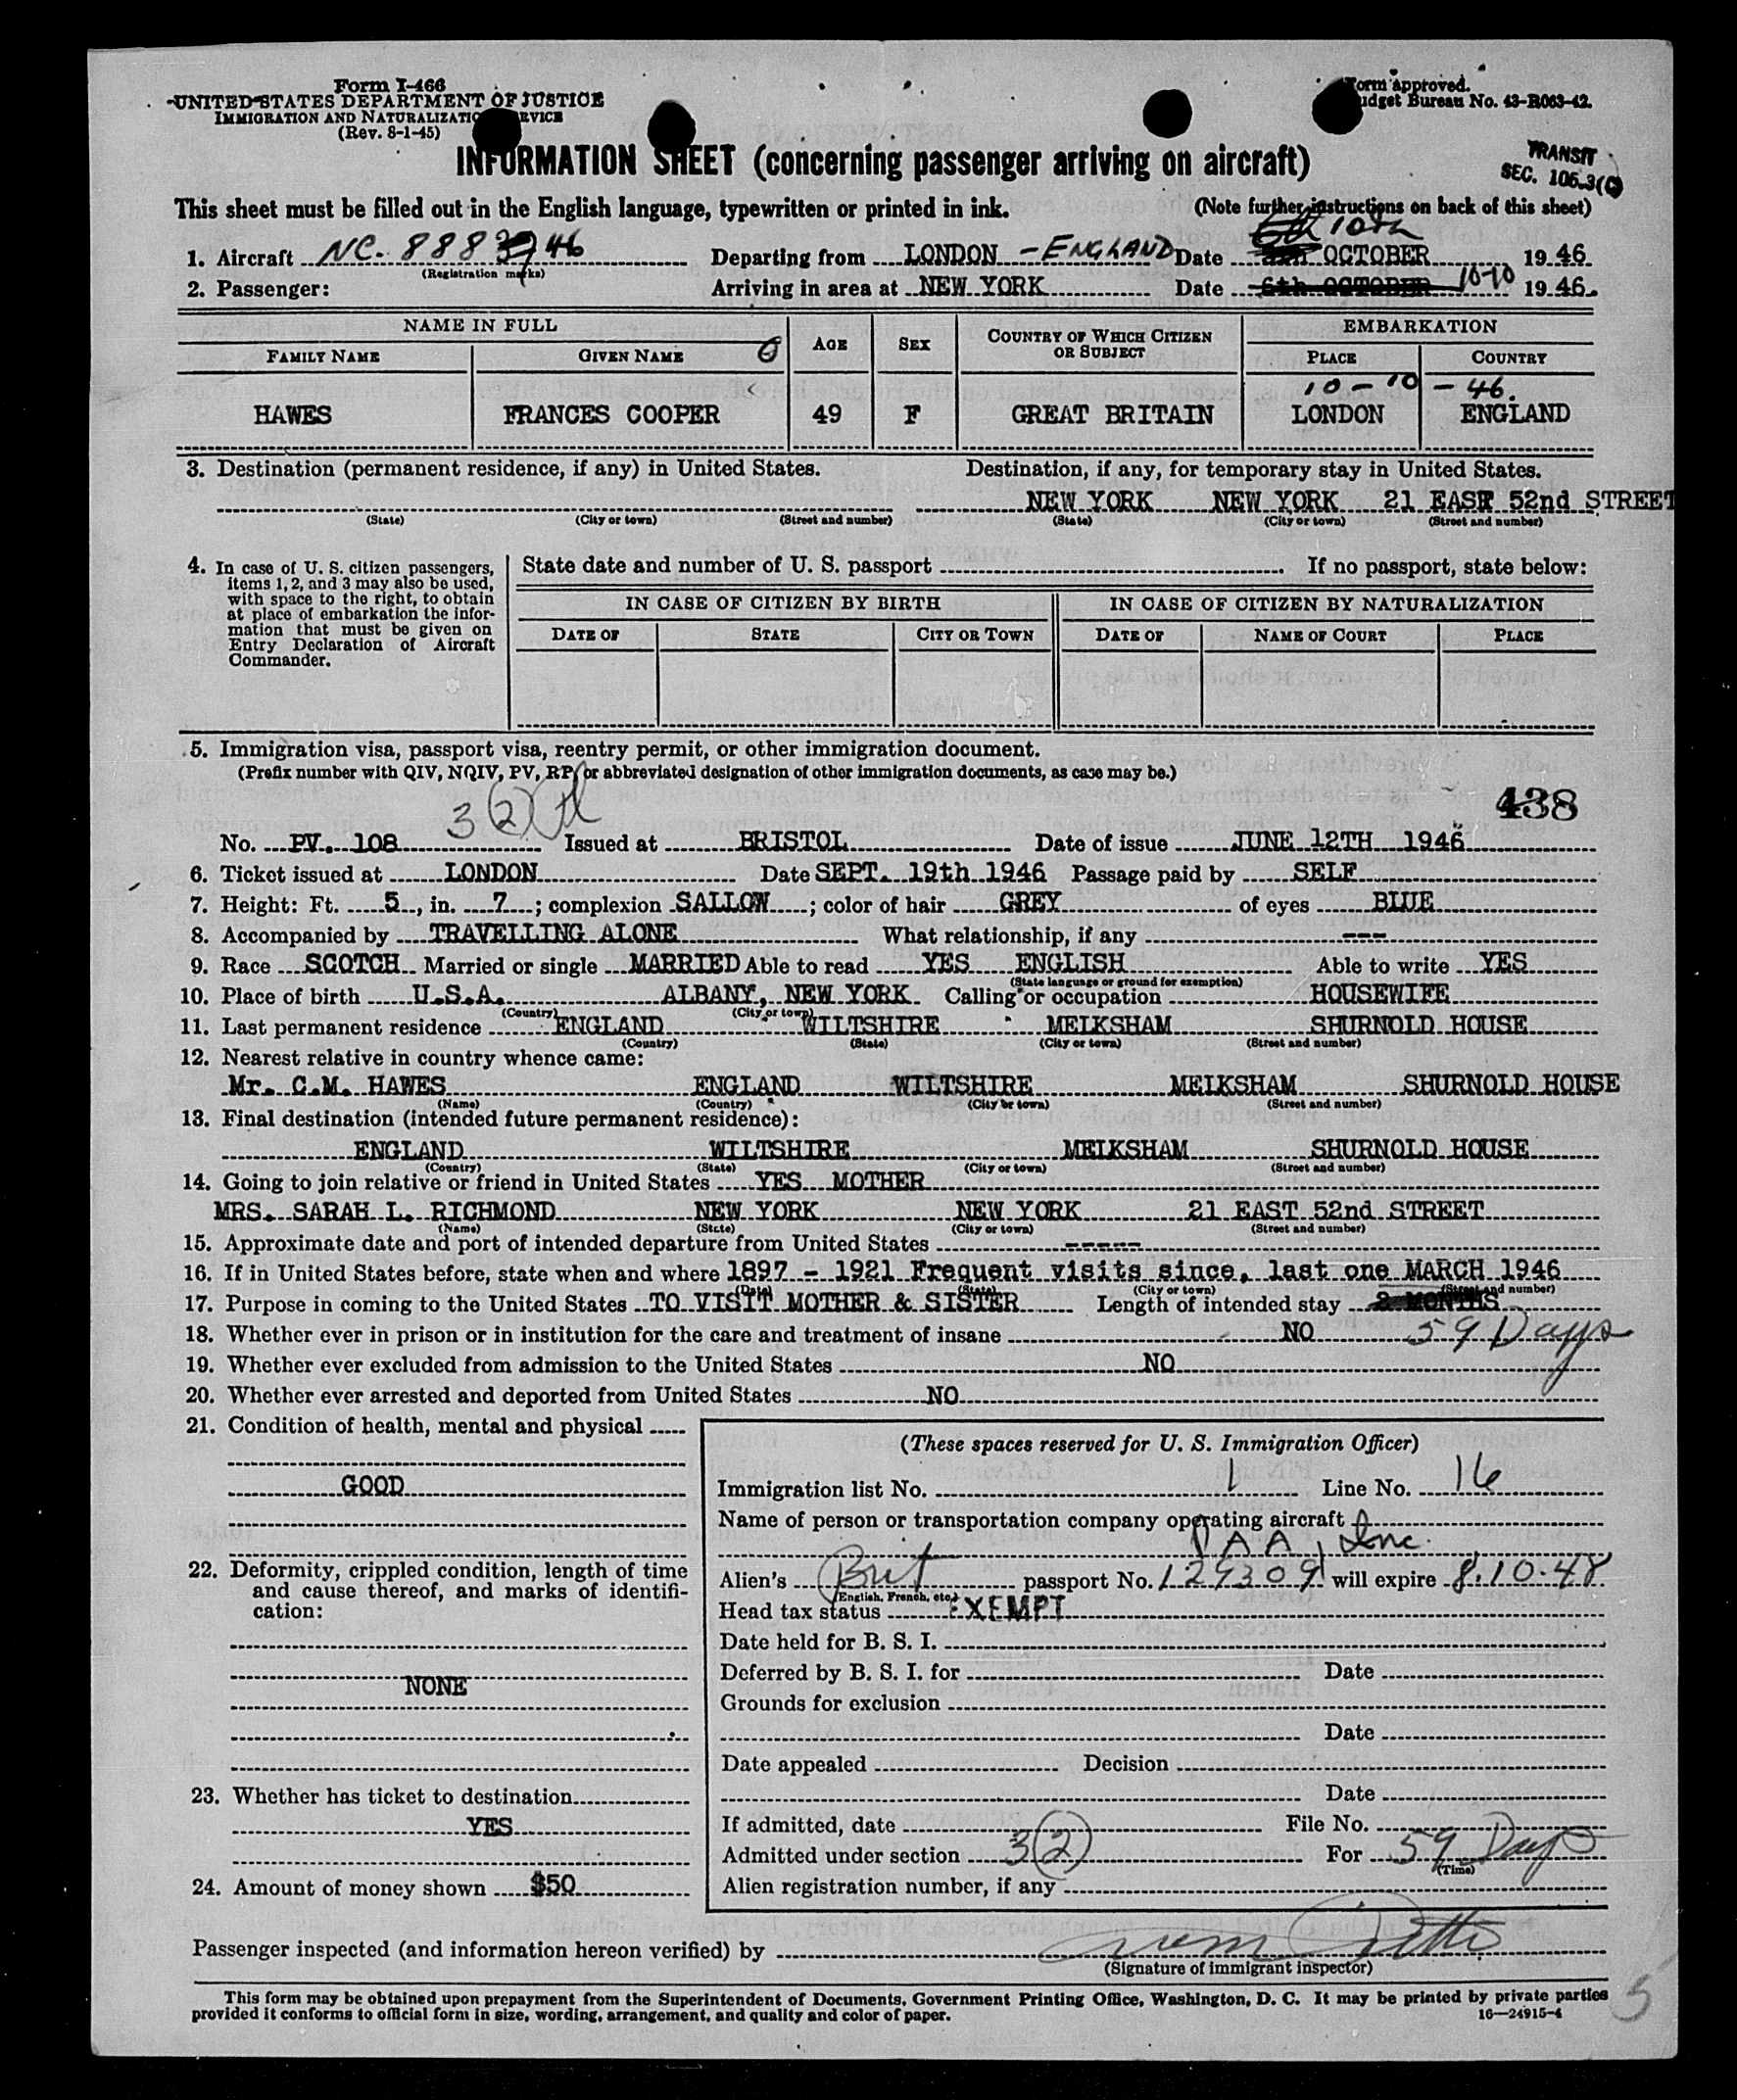 Form I-466
UNITED STATES DEPARTMENT OF JUSTICE
IMMIGRATION AND NATURALIZATIO RVICE
(Rev. 8-1-45)
orm approved.
udget Bureau No. 43-R063-42.
INFORMATION SHEET (concerning passenger arriving on aircraft)
TRANSIT
SEC. 106.3(C)
This sheet must be filled out in the English language, typewritten or printed in ink. (Note further instructions on back of this sheet)
10th
1. Aircraft NC. 888 46 Departing from LONDON - ENGLAND Date OCTOBER 19 46
(Registration marks)
2. Passenger: Arriving in area at NEW YORK Date 6th OCTOBER 10-10 19 46.
NAME IN FULL AGE SEX COUNTRY OF WHICH CITIZEN OR SUBJECT EMBARKATION
FAMILY NAME GIVEN NAME PLACE COUNTRY
10-10-46.
HAWES FRANCES COOPER 49 F GREAT BRITAIN LONDON ENGLAND
3. Destination (permanent residence, if any) in United States. Destination, if any, for temporary stay in United States.
NEW YORK NEW YORK 21 EAST 52nd STREET
(State) (City or town) (Street and number) (State) (City or town) (Street and number)
4. In case of U. S. citizen passengers, items 1, 2, and 3 may also be used, with space to the right, to obtain at place of embarkation the information that must be given on Entry Declaration of Aircraft Commander.
State date and number of U. S. passport If no passport, state below:
IN CASE OF CITIZEN BY BIRTH IN CASE OF CITIZEN BY NATURALIZATION
DATE OF STATE CITY OR TOWN DATE OF NAME OF COURT PLACE
5. Immigration visa, passport visa, reentry permit, or other immigration document.
(Prefix number with QIV, NQIV, PV, RP, or abbreviated designation of other immigration documents, as case may be.)
3(2)
438
No. PV. 108 Issued at BRISTOL Date of issue JUNE 12TH 1946
6. Ticket issued at LONDON Date SEPT. 19th 1946 Passage paid by SELF
7. Height: Ft. 5, in. 7; complexion SALLOW; color of hair GREY of eyes BLUE
8. Accompanied by TRAVELLING ALONE What relationship, if any ---
9. Race SCOTCH Married or single MARRIED Able to read YES ENGLISH Able to write YES
(State language or ground for exemption)
10. Place of birth U.S.A. ALBANY, NEW YORK Calling or occupation HOUSEWIFE
(Country) (City or town)
11. Last permanent residence ENGLAND WILTSHIRE MELKSHAM SHURNOLD HOUSE
(Country) (State) (City or town) (Street and number)
12. Nearest relative in country whence came:
Mr. C.M. HAWES ENGLAND WILTSHIRE MELKSHAM SHURNOLD HOUSE
(Name) (Country) (City or town) (Street and number)
13. Final destination (intended future permanent residence):
ENGLAND WILTSHIRE MELKSHAM SHURNOLD HOUSE
(Country) (State) (City or town) (Street and number)
14. Going to join relative or friend in United States YES MOTHER
MRS. SARAH L. RICHMOND NEW YORK NEW YORK 21 EAST 52nd STREET
(Name) (State) (City or town) (Street and number)
15. Approximate date and port of intended departure from United States -----
16. If in United States before, state when and where 1897 - 1921 Frequent visits since, last one MARCH 1946
(Date) (State) (City or town) (Street and number)
17. Purpose in coming to the United States TO VISIT MOTHER & SISTER Length of intended stay MONTHS
18. Whether ever in prison or in institution for the care and treatment of insane NO 59 Days
19. Whether ever excluded from admission to the United States NO
20. Whether ever arrested and deported from United States NO
21. Condition of health, mental and physical
GOOD
22. Deformity, crippled condition, length of time and cause thereof, and marks of identification:
NONE
23. Whether has ticket to destination
YES
24. Amount of money shown $50
(These spaces reserved for U. S. Immigration Officer)
Immigration list No. 1 Line No. 16
Name of person or transportation company operating aircraft
PAA, Inc.
Alien's Brit passport No. 129309 will expire 8.10.48
(English, French, etc.)
Head tax status EXEMPT
Date held for B. S. I.
Deferred by B. S. I. for Date
Grounds for exclusion
Date
Date appealed Decision
Date
If admitted, date File No.
Admitted under section 3(2) For 59 Days
(Time)
Alien registration number, if any
Passenger inspected (and information hereon verified) by
(Signature of immigrant inspector)
This form may be obtained upon prepayment from the Superintendent of Documents, Government Printing Office, Washington, D. C. It may be printed by private parties
provided it conforms to official form in size, wording, arrangement, and quality and color of paper. 16—24915-4
5